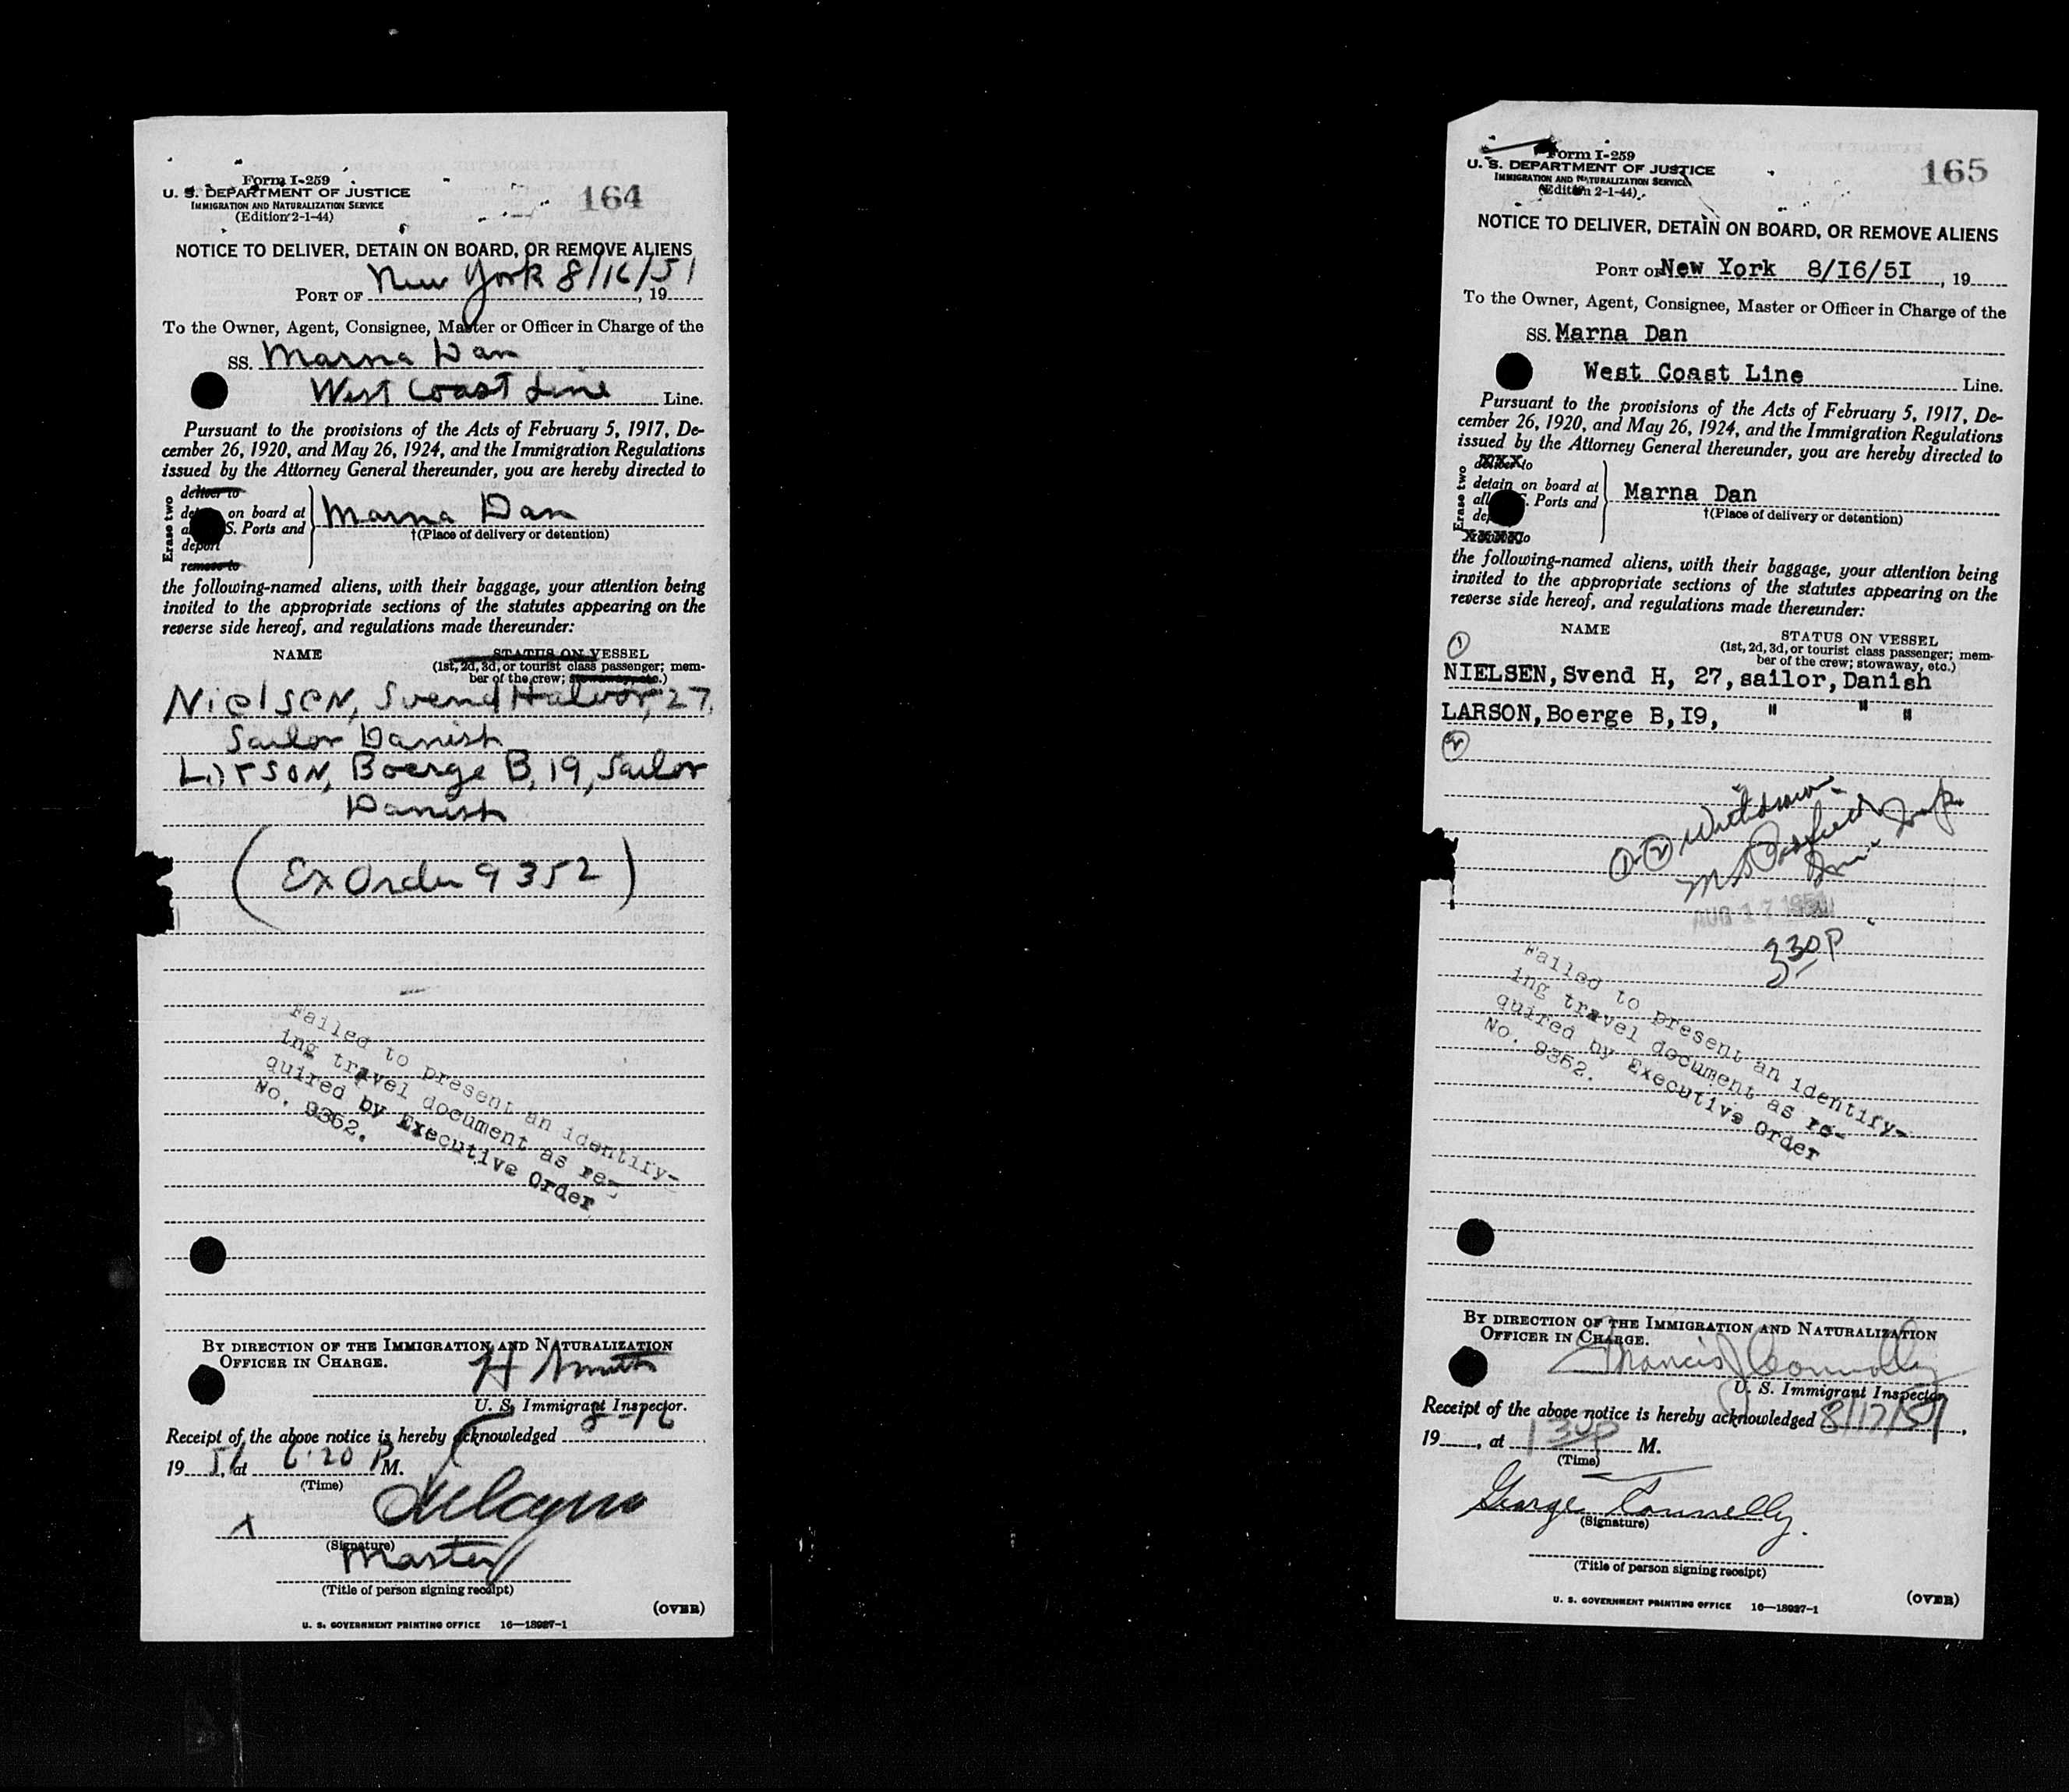 Form I-259
U. S. DEPARTMENT OF JUSTICE
IMMIGRATION AND NATURALIZATION SERVICE
(Edition 2-1-44)
164
NOTICE TO DELIVER, DETAIN ON BOARD, OR REMOVE ALIENS
PORT OF New York 8/16/51, 19
To the Owner, Agent, Consignee, Master or Officer in Charge of the
SS. Marna Dan
West Coast Line Line.
Pursuant to the provisions of the Acts of February 5, 1917, De-
cember 26, 1920, and May 26, 1924, and the Immigration Regulations
issued by the Attorney General thereunder, you are hereby directed to
Erase two
deliver to
on board at
S. Ports and
deport
remove to
Marna Dan
†(Place of delivery or detention)
the following-named aliens, with their baggage, your attention being
invited to the appropriate sections of the statutes appearing on the
reverse side hereof, and regulations made thereunder:
NAME
STATUS ON VESSEL
(1st, 2d, 3d, or tourist class passenger; mem-
ber of the crew; stowaway, etc.)
Nielsen, Svend Halvor, 27,
Sailor Danish
Larson, Boerge B, 19, Sailor
Danish
(Ex Order 9352)
Failed to present an identify-
ing travel document as re-
quired by Executive Order
No. 9352.
BY DIRECTION OF THE IMMIGRATION AND NATURALIZATION
OFFICER IN CHARGE.
H Smith
U. S. Immigrant Inspector.
Receipt of the above notice is hereby acknowledged 8-16
19 51, at 6:20 P M.
(Time)
(Signature)
Master
(Title of person signing receipt)
(OVER)
U. S. GOVERNMENT PRINTING OFFICE 16—18987-1
Form I-259
U. S. DEPARTMENT OF JUSTICE
IMMIGRATION AND NATURALIZATION SERVICE
(Edition 2-1-44)
165
NOTICE TO DELIVER, DETAIN ON BOARD, OR REMOVE ALIENS
PORT OF New York 8/I6/5I, 19
To the Owner, Agent, Consignee, Master or Officer in Charge of the
SS. Marna Dan
West Coast Line Line.
Pursuant to the provisions of the Acts of February 5, 1917, De-
cember 26, 1920, and May 26, 1924, and the Immigration Regulations
issued by the Attorney General thereunder, you are hereby directed to
Erase two
deliver to
detain on board at
all S. Ports and
remove to
Marna Dan
†(Place of delivery or detention)
the following-named aliens, with their baggage, your attention being
invited to the appropriate sections of the statutes appearing on the
reverse side hereof, and regulations made thereunder:
NAME
STATUS ON VESSEL
(1st, 2d, 3d, or tourist class passenger; mem-
ber of the crew; stowaway, etc.)
1
NIELSEN, Svend H, 27, sailor, Danish
LARSON, Boerge B, I9, " " "
2
1-2 Withdrawn
AUG 17 1951
330 P
Failed to present an identify-
ing travel document as re-
quired by Executive Order
No. 9352.
BY DIRECTION OF THE IMMIGRATION AND NATURALIZATION
OFFICER IN CHARGE.
Francis J Connolly
U. S. Immigrant Inspector
Receipt of the above notice is hereby acknowledged 8/17/51,
19, at 1 30 P M.
(Time)
George Connelly.
(Signature)
(Title of person signing receipt)
(OVER)
U. S. GOVERNMENT PRINTING OFFICE 16—18987-1